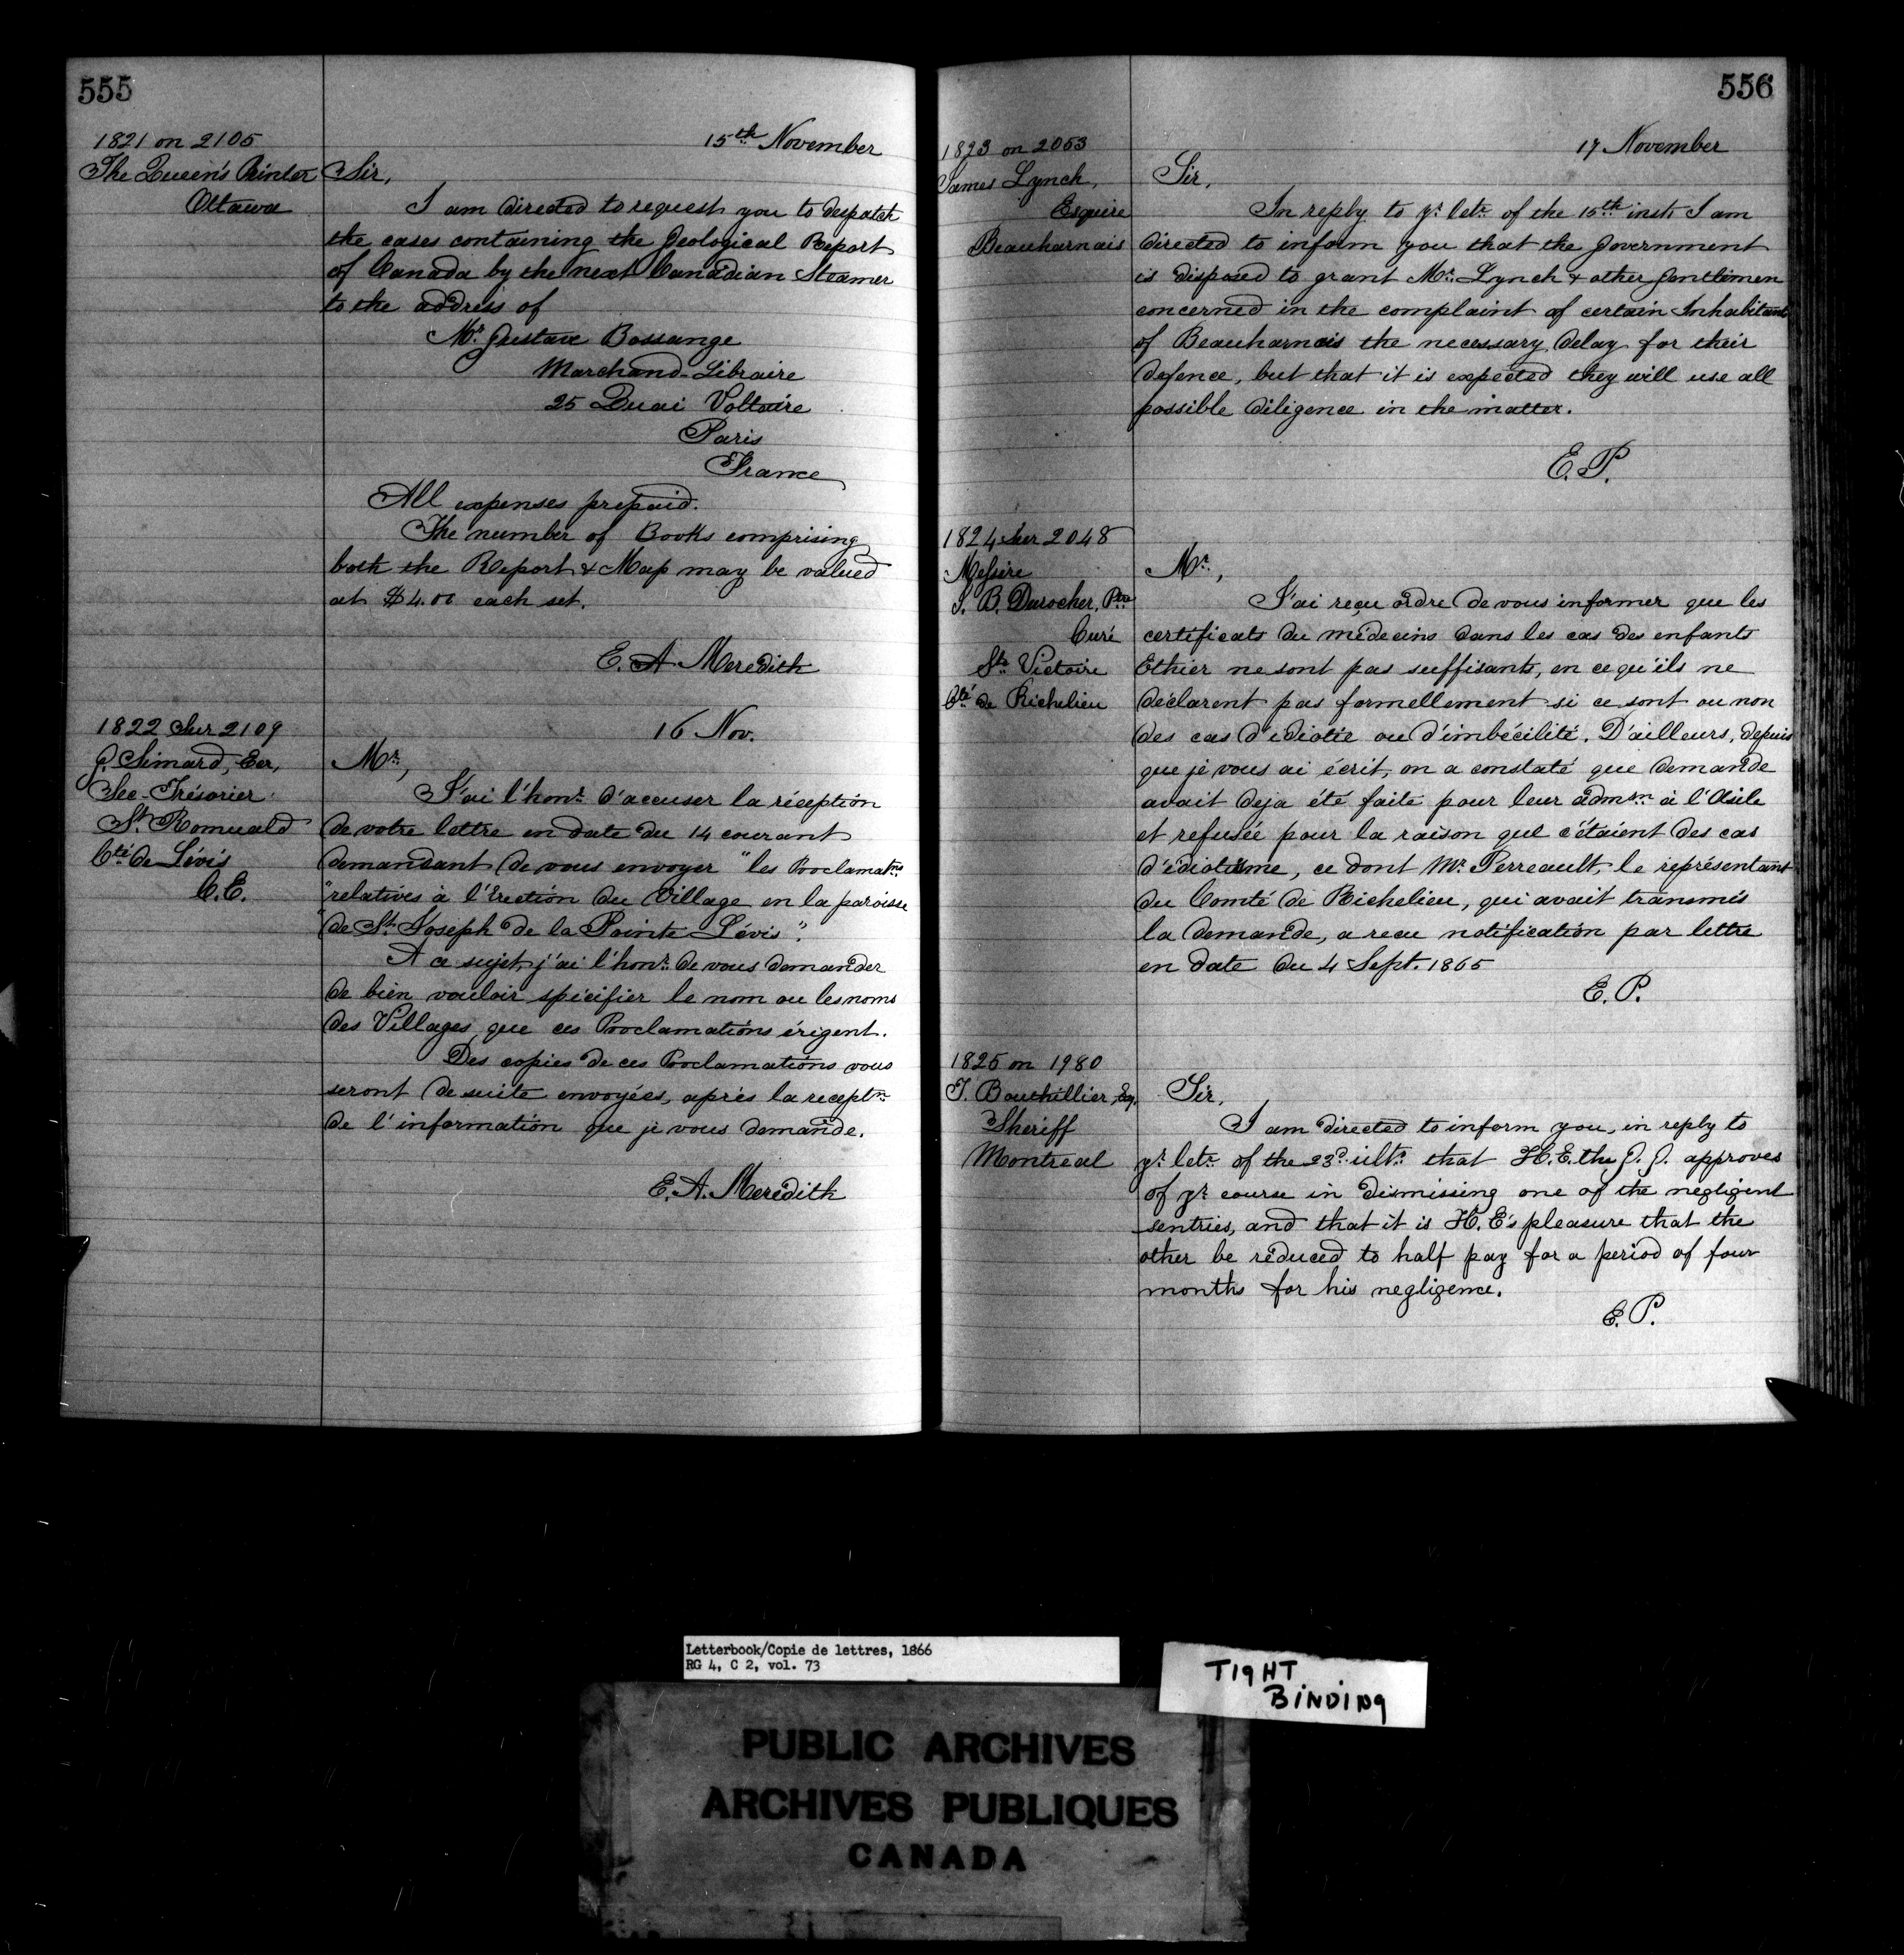 555
1821 on 2105
The Queen's Printer
Ottawa
15th November
Sir,
I am directed to request you to despatch
the cases containing the Geological Report
of Canada by the next Canadian Steamer
to the address of
Mr. Gustave Bossange
Marchand-Libraire
25 Quai Voltaire
Paris
France
All expenses prepaid.
The number of Books comprising
both the Report & Map may be valued
at $4.00 each set.
E. A. Meredith
1822 Sur 2109
J. Simard, Ecr,
Sec-Trésorier
St. Romuald
Cté de Lévis
C.E.
16 Nov.
Mr.,
J'ai l'honr. d'accuser la réception
de votre lettre en date du 14 courant
demandant de vous envoyer "les Proclamatns
"relatives à l'Erection du Village en la paroisse
"de St. Joseph de la Pointe Lévis".
A ce sujet, j'ai l'honr. de vous demander
de bien vouloir spécifier le nom ou les noms
des Villages que ces Proclamations érigent.
Des copies de ces Proclamations vous
seront de suite envoyées, après la receptn.
de l'information que je vous demande.
E. A. Meredith
556
1823 on 2053
James Lynch,
Esquire
Beauharnais
17 November
Sir,
In reply to yr. letr. of the 15th inst. I am
directed to inform you that the Government
is disposed to grant Mr. Lynch & other Gentlemen
concerned in the complaint of certain Inhabitants
of Beauharnois the necessary delay for their
defence, but that it is expected they will use all
possible diligence in the matter.
E. P.
1824 Sur 2048
Messire
J. B. Durocher, Ptre
Curé
Ste. Victoire
Cté de Richelieu
Mr.,
J'ai reçu ordre de vous informer que les
certificats du médecins dans les cas des enfants
Ethier ne sont pas suffisants, en ce qu'ils ne
déclarent pas formellement si ce sont ou non
des cas d'idiotie ou d'imbécilité. D'ailleurs, depuis
que je vous ai écrit, on a constaté que demande
avait deja été faite pour leur admsn. à l'Asile
et refusée pour la raison que c'étaient des cas
d'idiotisme, ce dont Mr. Perreault, le représentant
du Comté de Richelieu, qui avait transmis
la demande, a recu notification par lettre
en date du 4 Sept. 1865
E. P.
1825 on 1980
T. Bouthillier, Eq.
Sheriff
Montreal
Sir,
I am directed to inform you, in reply to
yr. letr. of the 23d. ulto. that H.E. the G. G. approves
of yr. course in dismissing one of the negligent
sentries, and that it is H. E's pleasure that the
other be reduced to half pay for a period of four
months for his negligence.
E. P.
Letterbook/Copie de lettres, 1866
RG 4, C 2, vol. 73
TIGHT
BINDING
PUBLIC ARCHIVES
ARCHIVES PUBLIQUES
CANADA